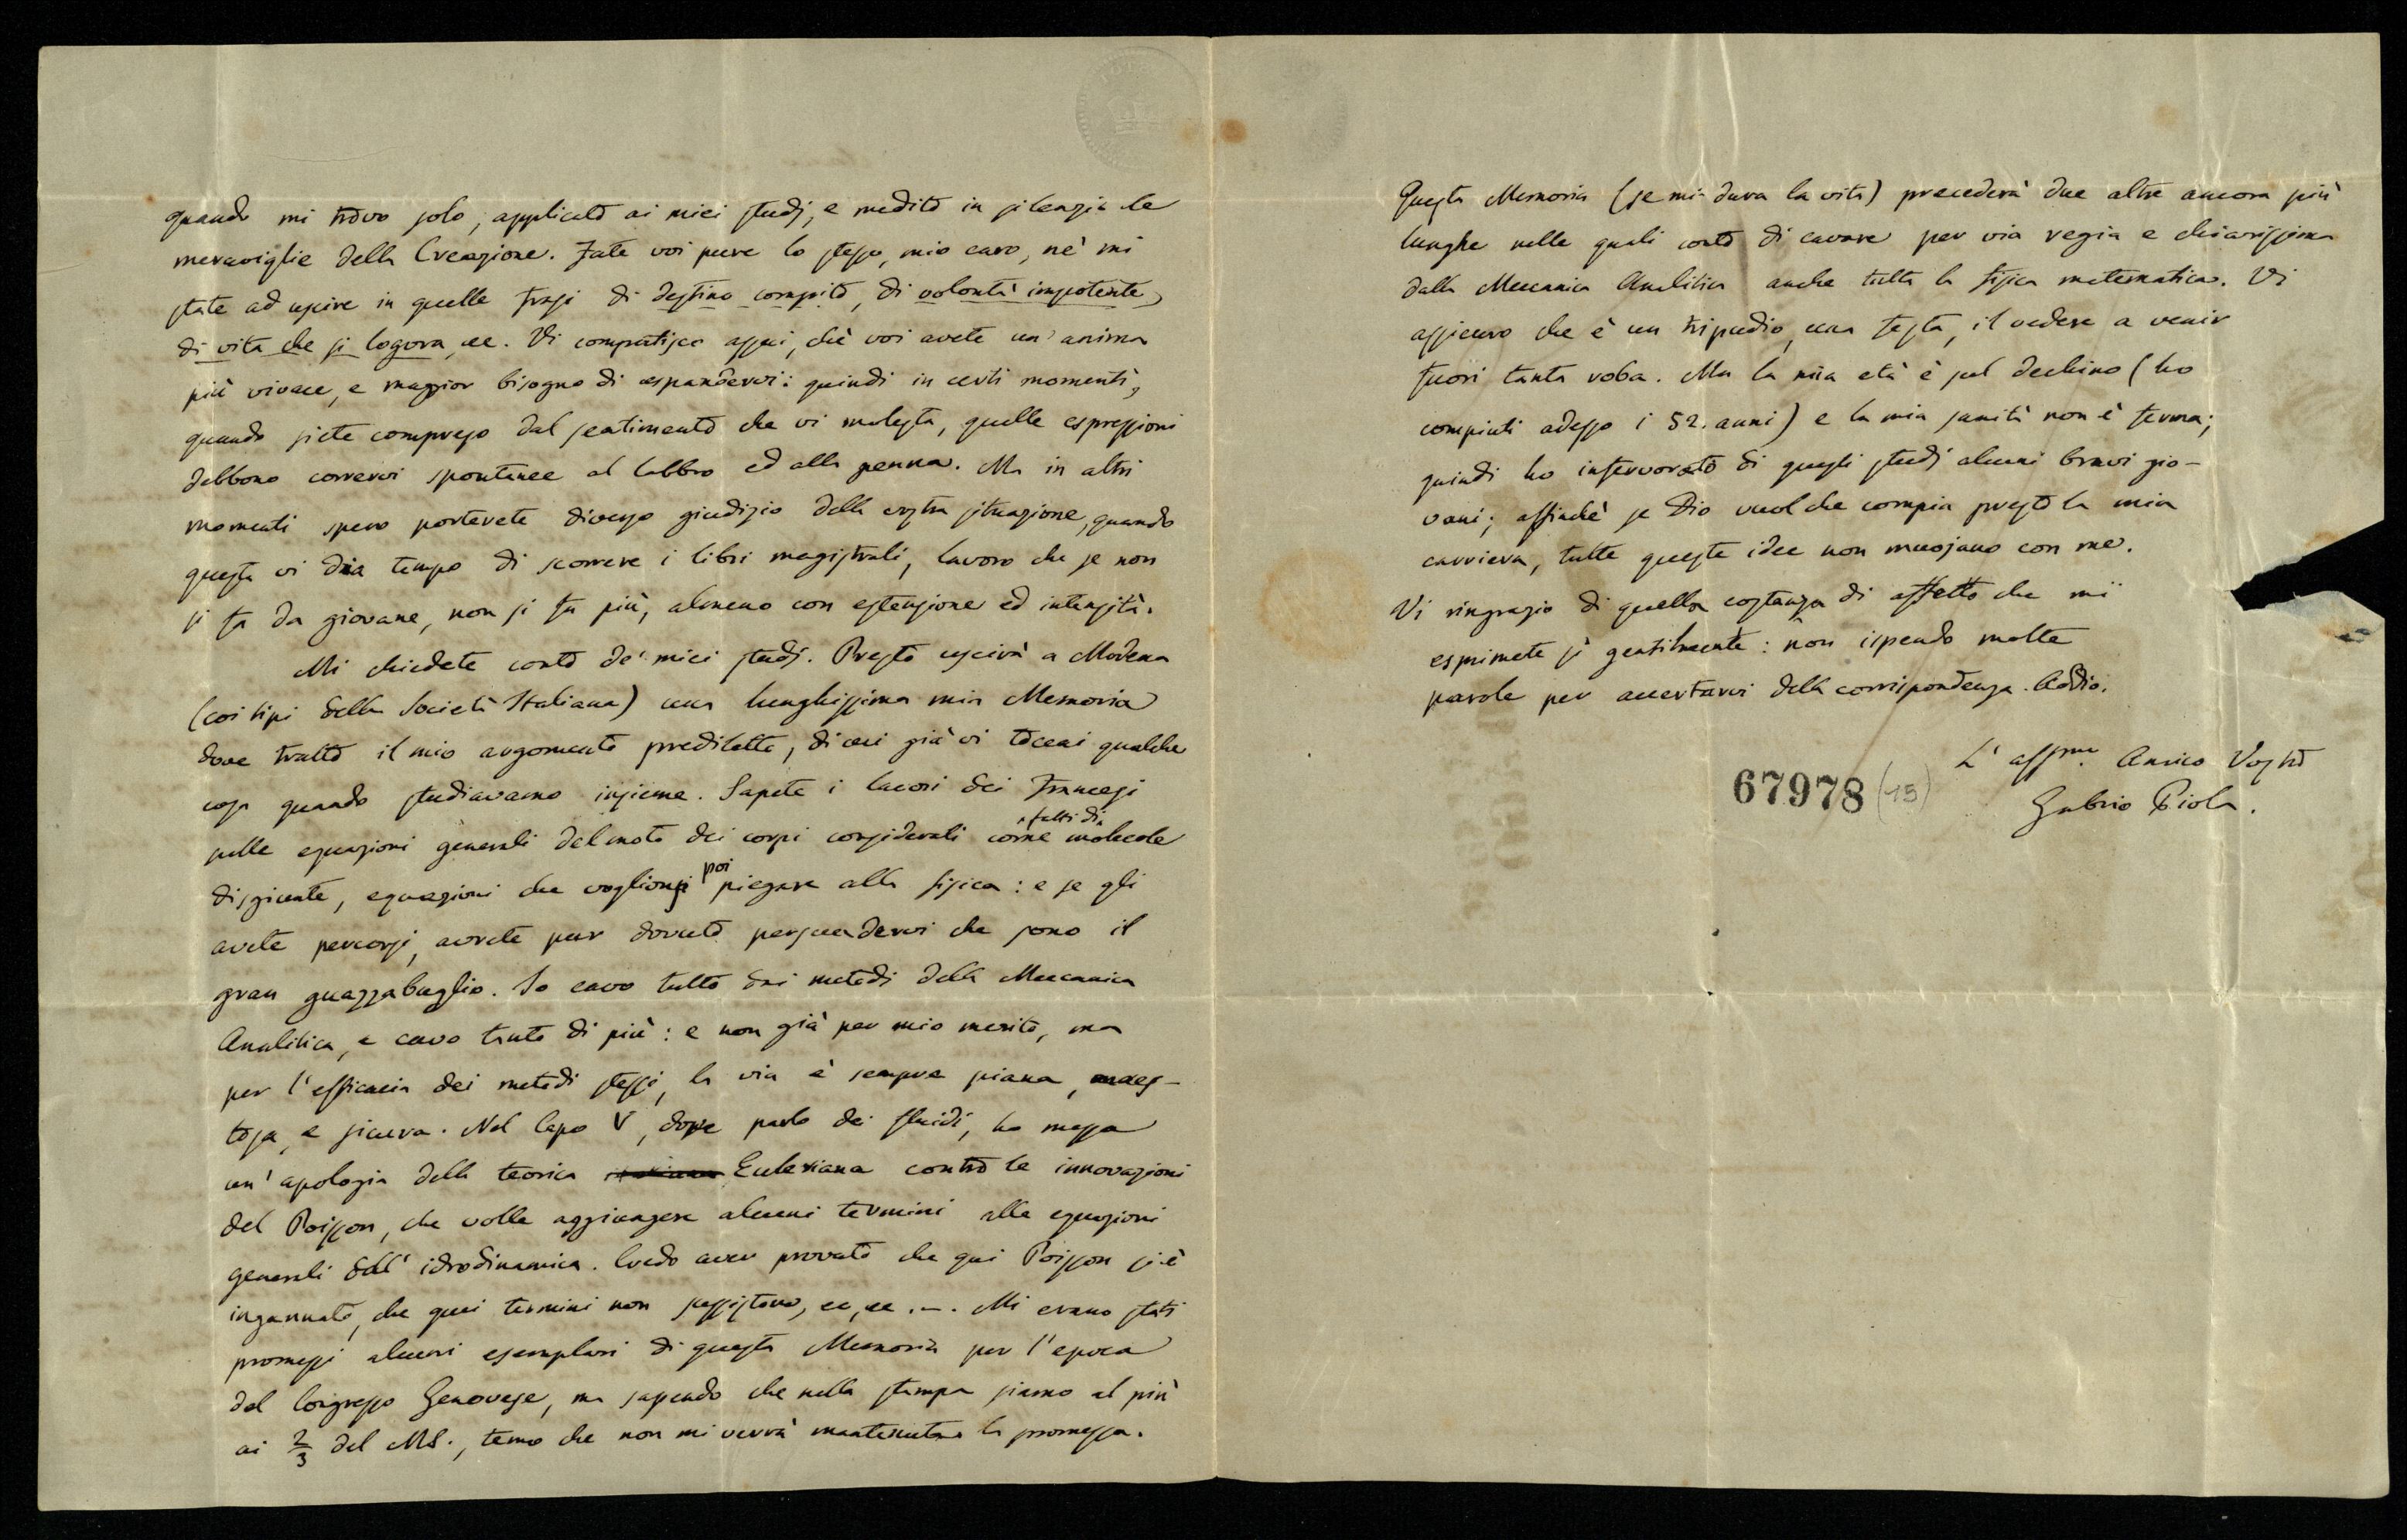 quando mi trovo solo, applicato ai miei studj, e medito in silenzio le
meraviglie della Creazione. Fate voi pure lo stesso, mio caro, nè mi
state ad uscire in quelle frasi di destino compito, di volontà impotente,
di vita che si logora ec. Vi compatisco assai, chè voi avete un'anima
più vivace, e maggior bisogno di espandervi: quindi in certi momenti,
quando siete compreso dal sentimento che vi molesta, quelle espressioni
debbono corrervi spontanee al labbro ed alla penna. Ma in altri
momenti spero porterete diverso giudizio della vostra situazione, quando
questa vi dia tempo di scorrere i libri magistrali, lavoro che se non
si fa da giovane, non si fa più, almeno con estensione ed intensità.
Mi chiedete conto de' miei studj. Presto uscirà a Modena
(coi tipi della Società Italiana) una lunghissima mia Memoria
dove tratto il mio argomento prediletto, di cui già vi toccai qualche
cosa quando studiavamo insieme. Sapete i lavori dei Francesi
sulle equazioni generali del moto dei corpi considerati come fatti di molecole
disgiunte, equazioni che voglionsi poi piegare alla fisica: e se gli
avete percorsi, avrete pur dovuto persuadervi che sono il
gran guazzabuglio. Io cavo tutto dai metodi della Meccanica
Analitica, e cavo tanto di più: e non già per mio merito, ma
per l'efficacia dei metodi stessi, la via è sempre piana, maes-
tosa, e sicura. Nel Capo V, dove parlo dei fluidi, ho messa
un'apologia della teorica Euleriana contro le innovazioni
del Poisson, che volle aggiungere alcuni termini alle equazioni
generali dell'idrodinamica. Credo aver provato che qui Poisson si è
ingannato, che quei termini non sussistono, ec, ec. —. Mi erano stati
promessi alcuni esemplari di questa Memoria per l'epoca
del Congresso Genovese, ma sapendo che nella stampa siamo al più
ai 2/3 del MS., temo che non mi verrà mantenuta la promessa.
Questa Memoria (se mi dura la vita) precederà due altre ancora più
lunghe nelle quali conto di cavare per via regia e chiarissima
dalla Meccanica Analitica anche tutta la fisica matematica. Vi
assicuro che è un tripudio, una festa, il vedere a venir
fuori tanta roba. Ma la mia età è sul declino (ho
compiuti adesso i 52. anni) e la mia sanità non è ferma;
quindi ho infervorato di questi studj alcuni bravi gio-
vani; affinchè se Dio vuol che compia presto la mia
carriera, tutte queste idee non muojano con me.
Vi ringrazio di quella costanza di affetto che mi
esprimete sì gentilmente: non ispendo molte
parole per accertarvi della corrispondenza. Addio.
L' affmo. Amico Vostro
Gabrio Piola.
67978 (15)